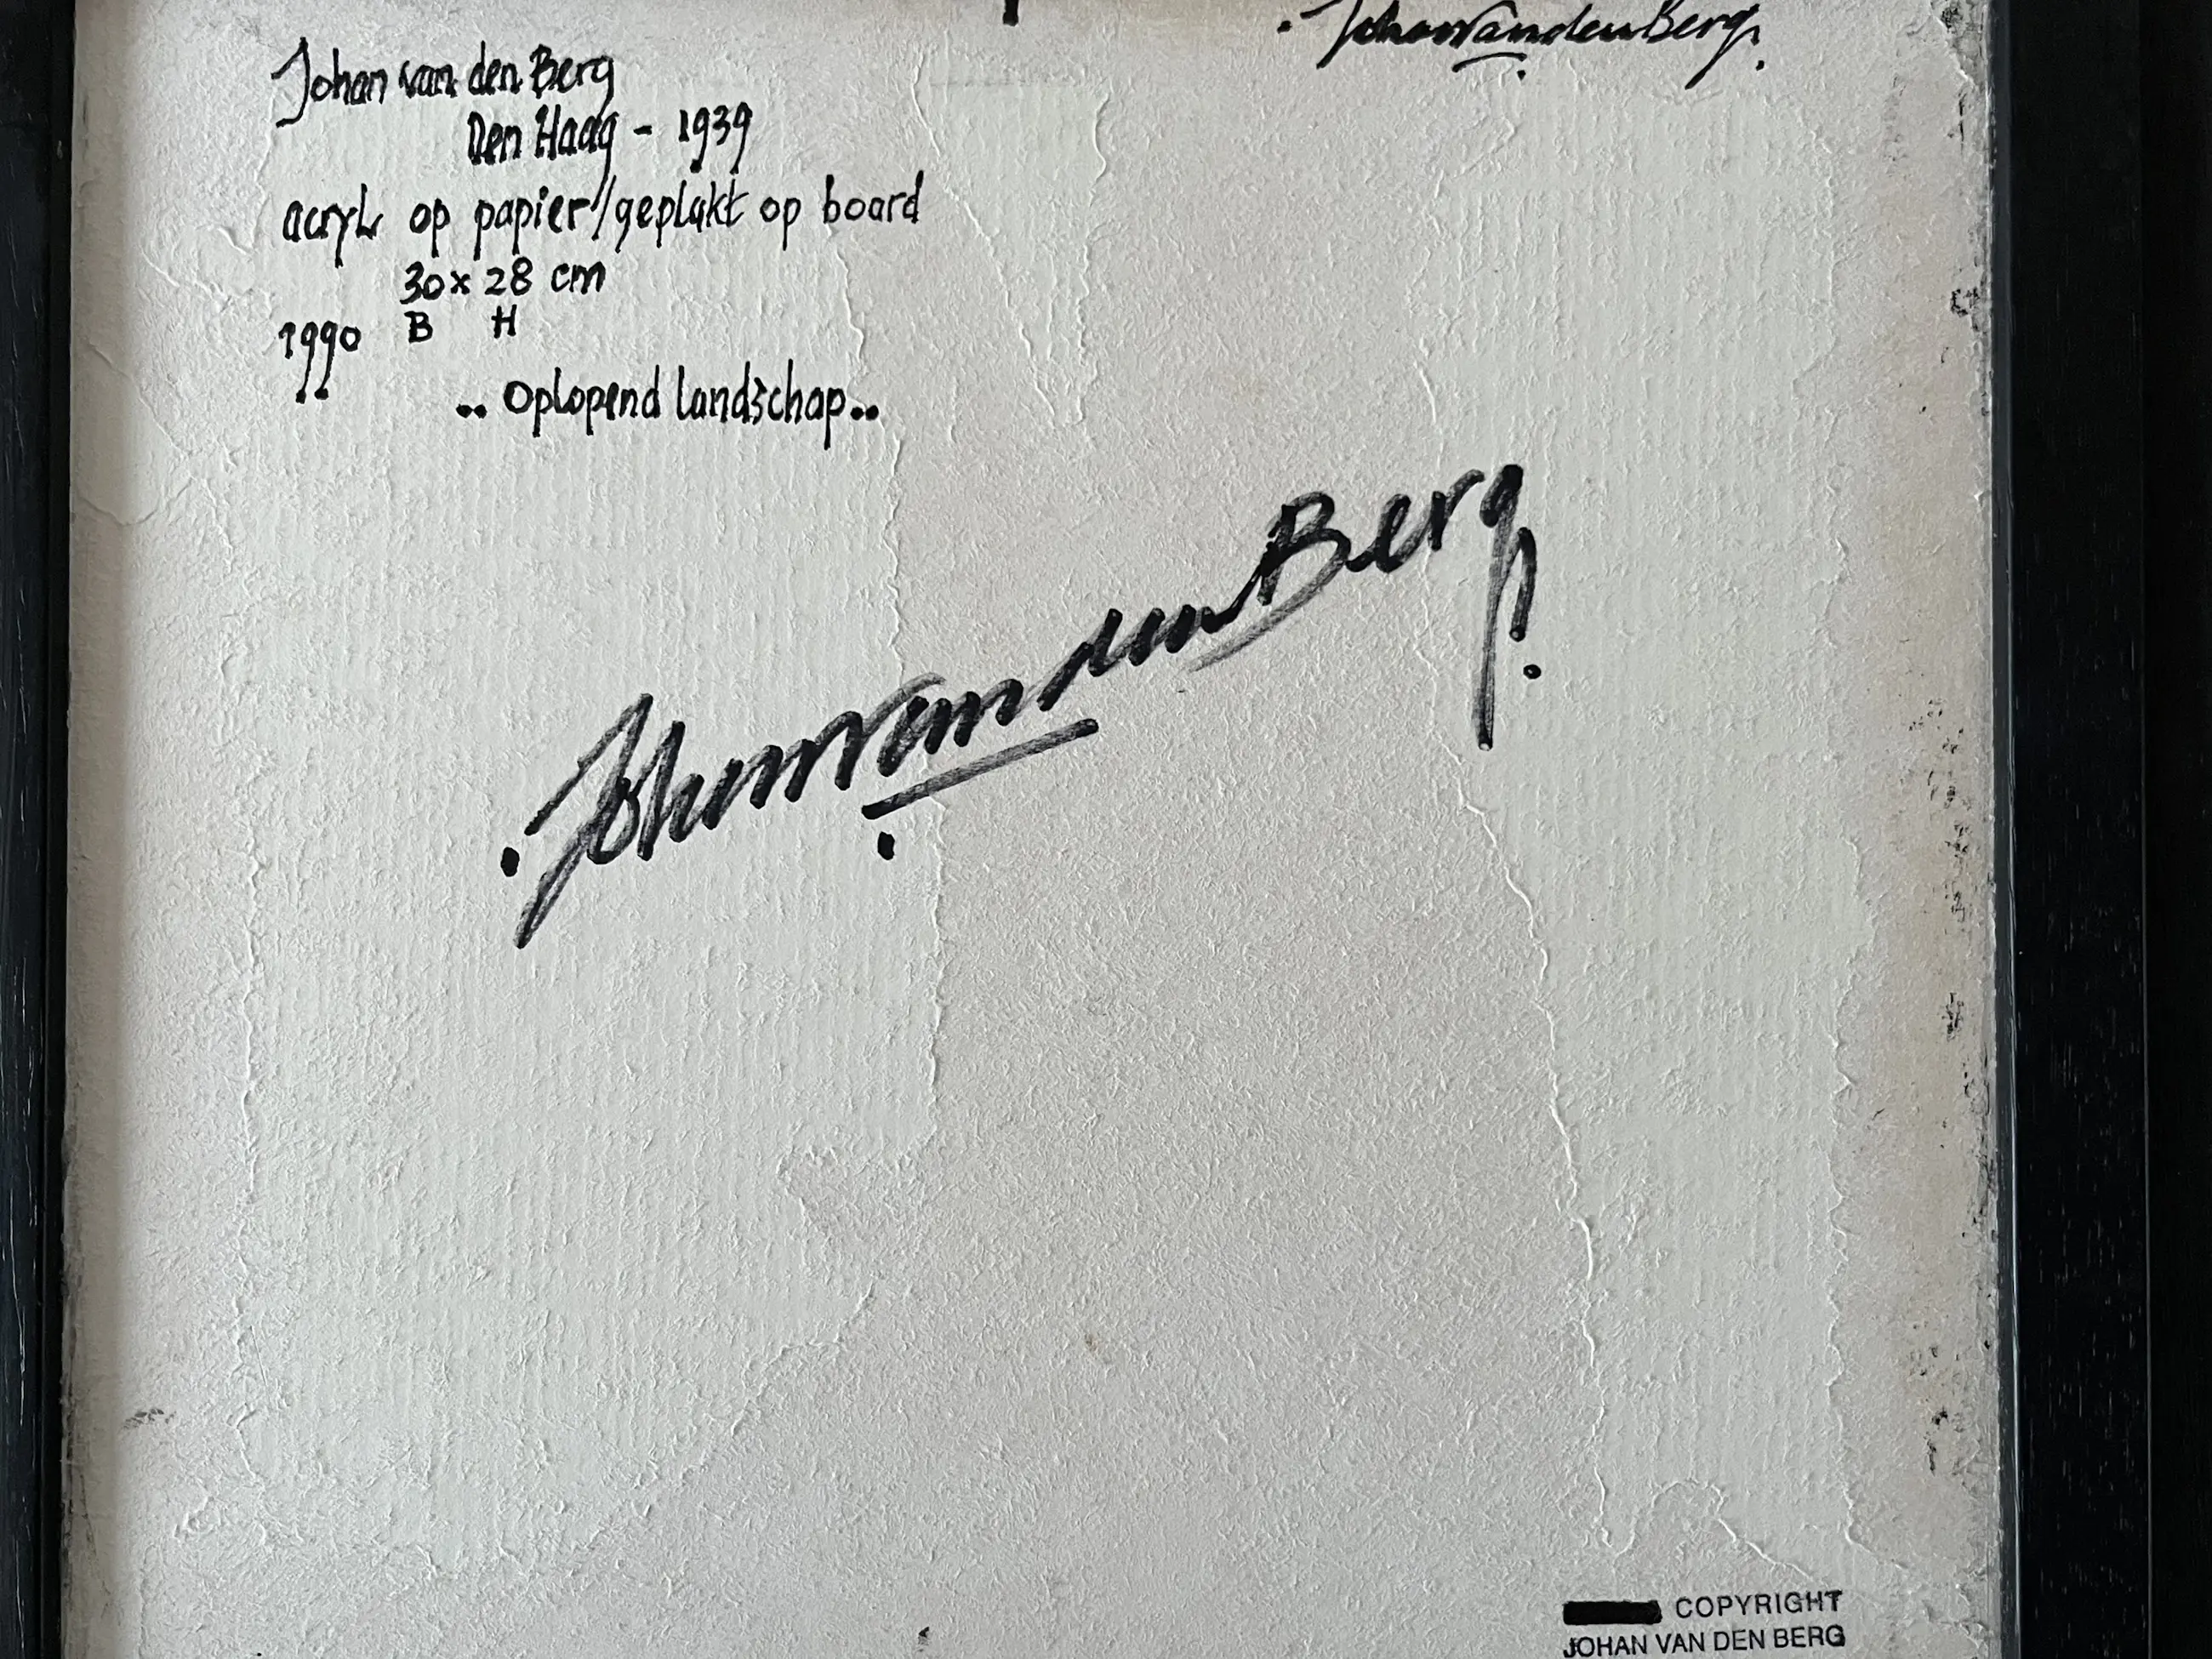 Johan van den Berg
Johan van den Berg
Den Haag - 1939
acryl op papier/geplakt op board
30 x 28 cm
1990 B H
.. Oplopend landschap..
Johan van den Berg
COPYRIGHT
JOHAN VAN DEN BERG